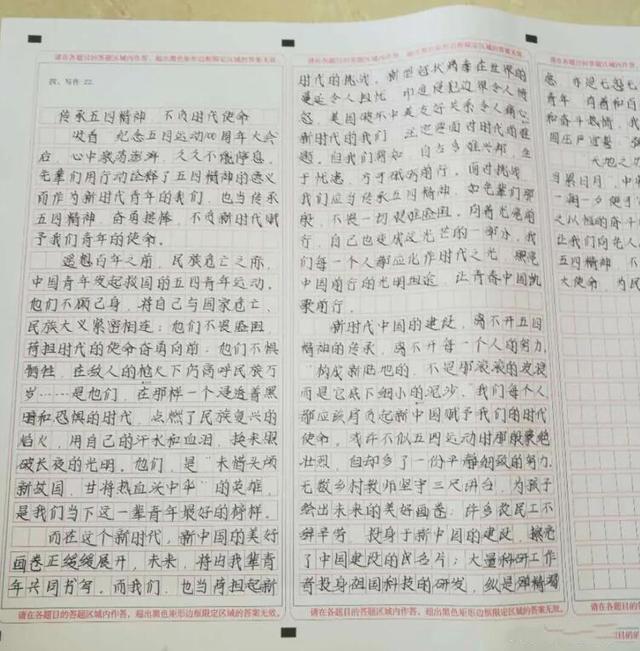 请在各题目的答题区域内作答，超出黑色矩形边框限定区域的答案无效。
四、写作 22.
传承五四精神 不负时代使命
欣看 纪念五四运动100周年大会
后，心中激荡澎湃，久久不能停息。
先辈们用行动诠释了五四精神的意义
而作为新时代青年的我们，也当传承
五四精神，奋勇接棒，不负新时代赋
予我们青年的使命。
遥想百年之前，民族危亡之际，
中国青年发起救国的五四青年运动。
他们不顾己身，将自己与国家危亡、
民族大义紧密相连；他们不畏险阻，
荷担时代的使命奋勇向前；他们不惧
牺牲，在敌人的枪火下仍高呼民族万
岁……是他们，在那样一个浸透着黑
暗和恐惧的时代，点燃了民族复兴的
焰火，用自己的汗水和血泪，换来那
破长夜的光明。他们，是"未惜头颅
新故国，甘将热血沃中华"的英雄，
是我们当下这一辈青年最好的榜样。
而在这个新时代，新中国的美好
画卷正缓缓展开，未来，将由我辈青
年共同书写。而我们，也当荷担起新
请在各题目的答题区域内作答，超出黑色矩形边框限定区域的答案无效。
请在各题目的答题区域内作答，超出黑色矩形边框限定区域的答案无效。
时代的挑战。新型冠状病毒在世界的
蔓延令人担忧，印度侵犯边界令人愤
怒，美国破坏中美友好关系令人痛心
新时代的我们，正迎面对时代的难
题。但我们将知，自古多难兴邦，生
于忧患，方于砥砺前行。面对挑战，
我们应当传承五四精神，如先辈们那
般，不畏一切艰难险阻，向着光亮前
行，自己也变成这光芒的一部分，我
们每一个人都应化作时代之光，照亮
中国前行的光明坦途，让青春中国凯
歌前行。
新时代中国的建设，离不开五四
精神的传承，离不开每一个人的努力。
"构成新陆地的，不是那滚滚的波浪
而是它底下细小的泥沙。"我们每个人
都应该肩负起新中国赋予我们的时代
使命。或许不似五四运动时那般艰绝
壮烈，但却多了一份平静细致的努力.
无数乡村教师坚守三尺讲台，为孩子
绘出未来的美好画卷；许多农民工不
辞辛劳，投身于新中国的建设，擦亮
了中国建设的民名片；大量科研工作
者投身祖国科技的研发，纵是
请在各题目的答题区域内作答，超出黑色矩形边框限定区域的答案无效。
请在各题目的答题区域
青年
和奋斗热情，我
国庄严宣誓，
天地之
当累日月，中
一朝一夕便
之以恒的奋斗
让我们向先人
五四精神，不
大使命，为民